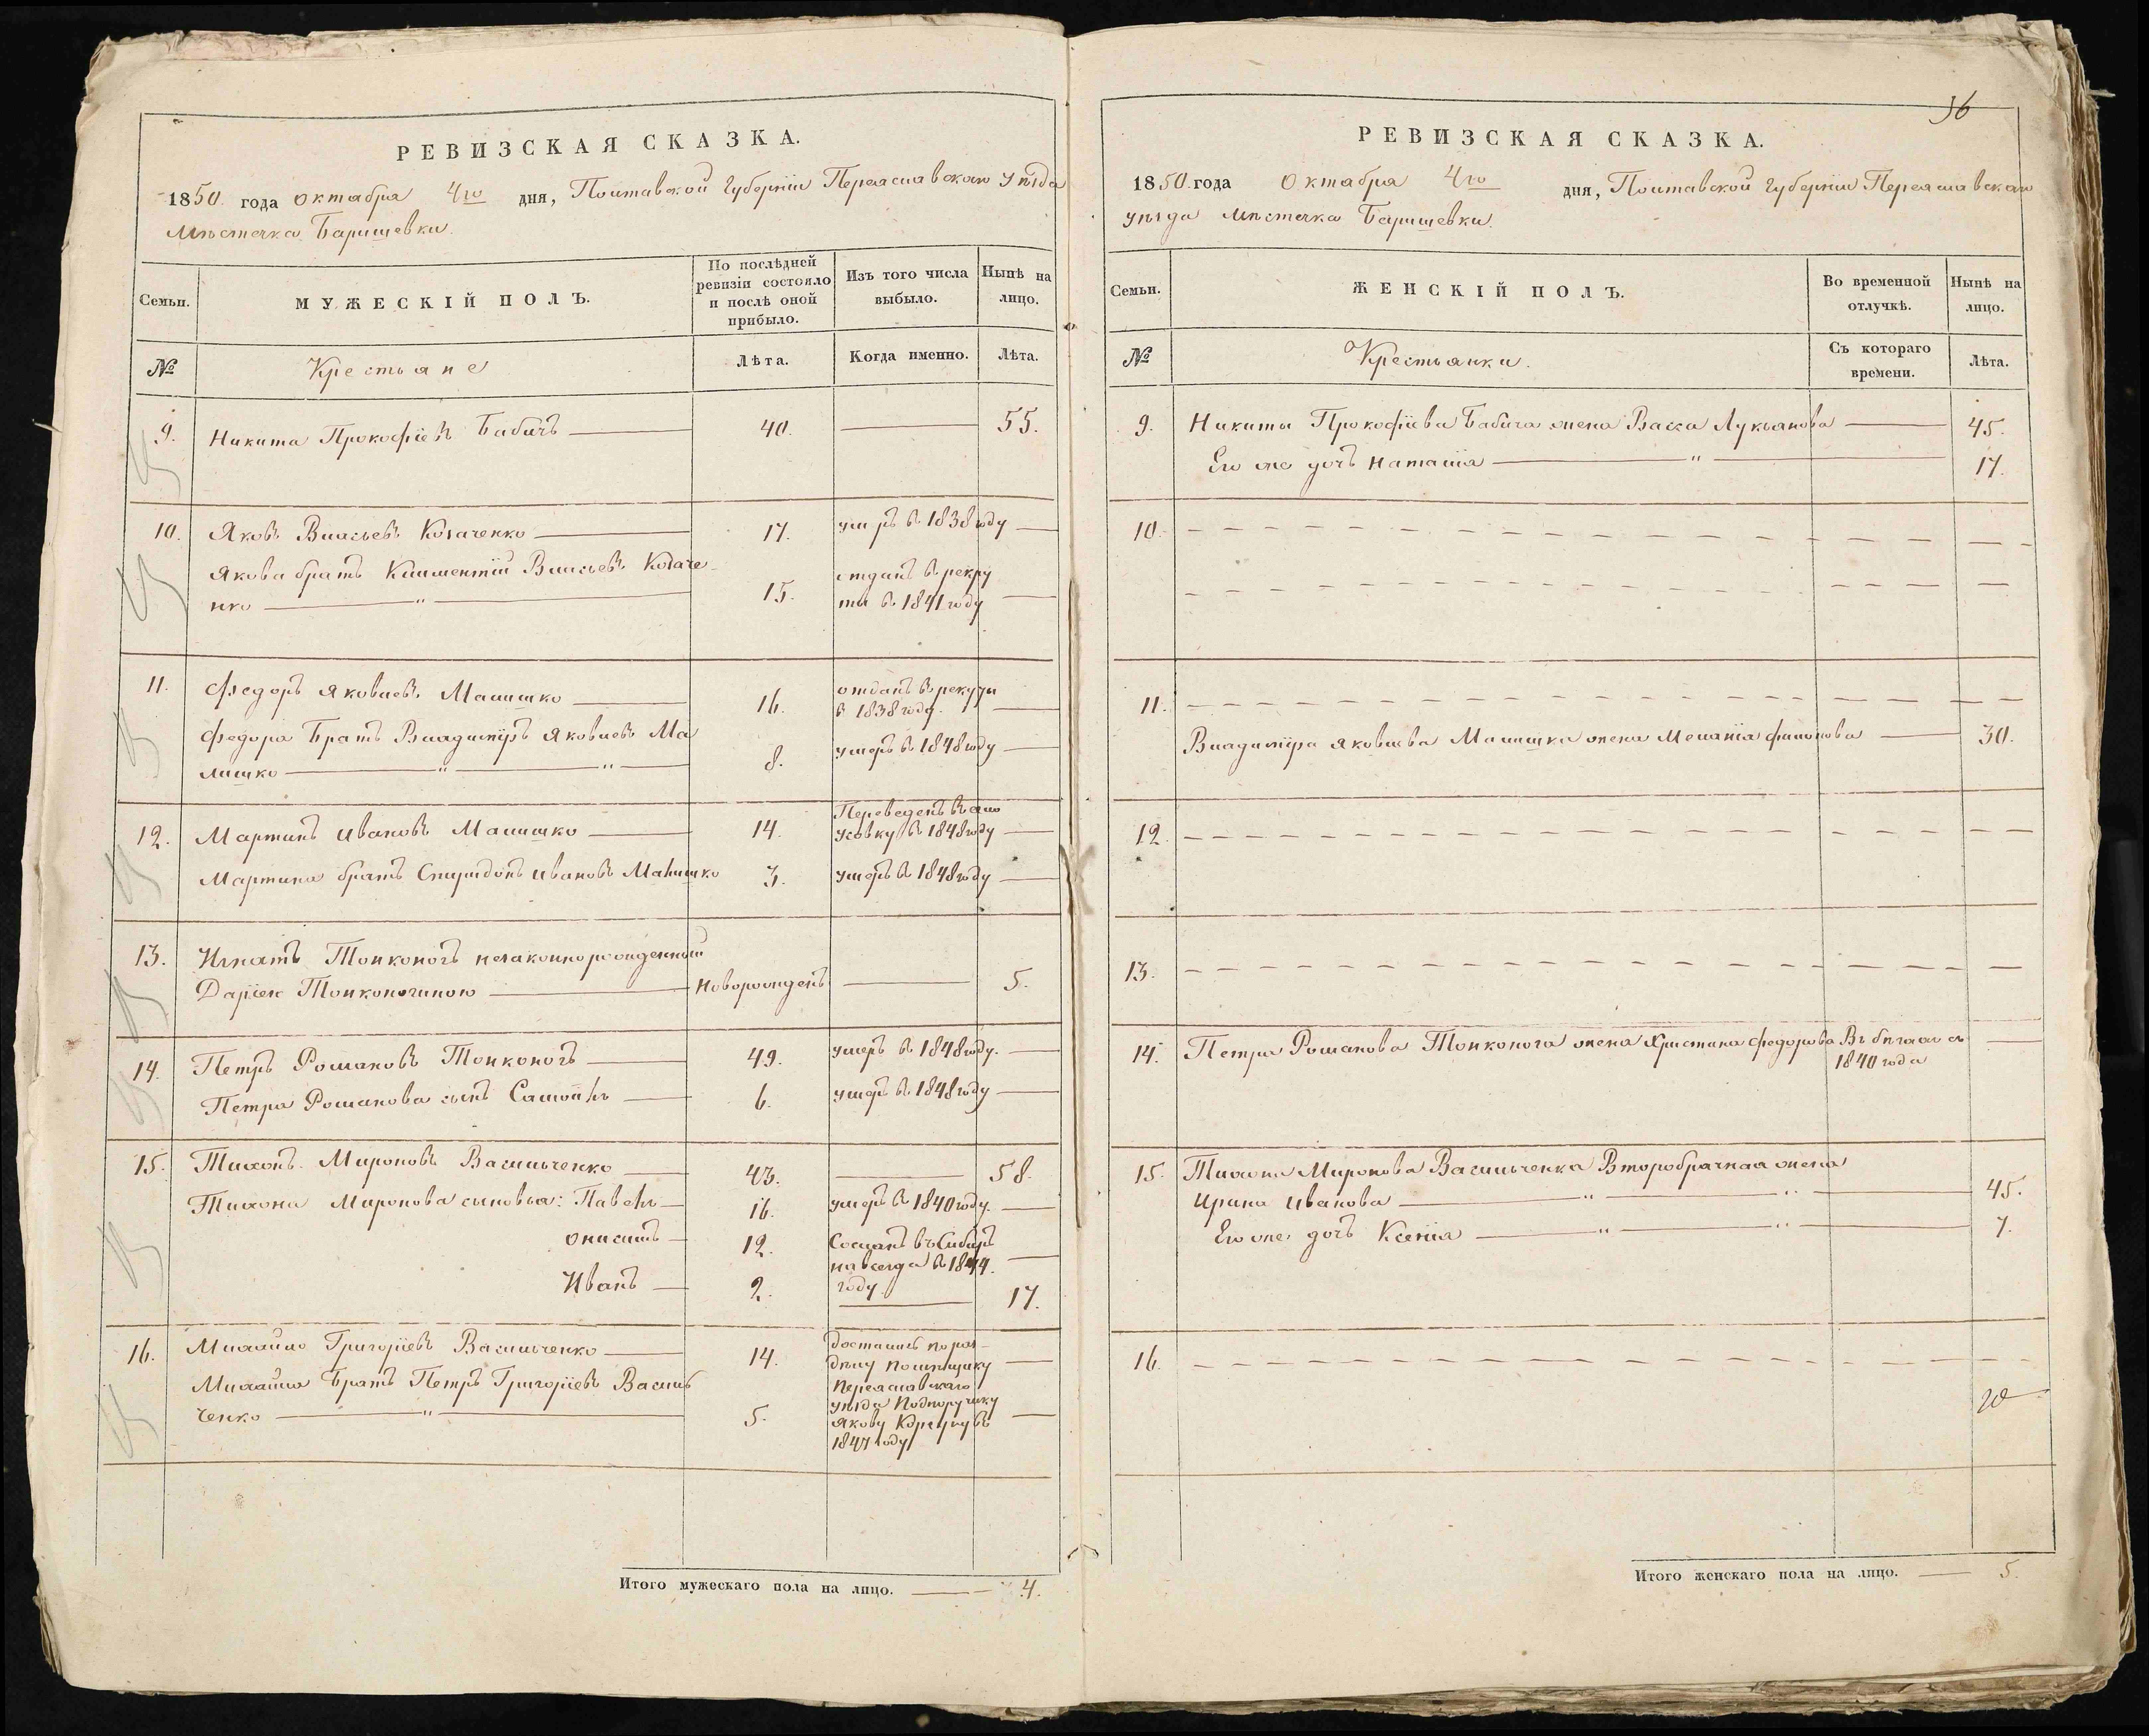 РЕВИЗСКАЯ СКАЗКА.
1850 года октября 4го дня, Полтавской Губернии Переяславского уѣзда
Мѣстечка Баришевки.
Семьи.
МУЖЕСКІЙ ПОЛЪ.
По послѣдней
ревизіи состояло
и послѣ оной
прибыло.
Изъ того числа
выбыло.
Нынѣ на
лицо.
№
Крестьяне
Лѣта.
Когда именно.
Лѣта.
9. Никита Прокофіевъ Бабичъ 40. 55.
10. Яковъ Власьевъ Козаченко 17. умръ въ 1838 году
Якова братъ Климентій Власьевъ Козаче-
нко " 15. отданъ въ рекру
ты въ 1841 году
11. Федоръ Яковлевъ Малишко 16. отданъ въ рекруты
в 1838 году.
Федора Братъ Владиміръ Яковлевъ Ма
лишко " " 8. умеръ въ 1848 году
12. Мартинъ Ивановъ Малишко 14. Переведенъ въ
усовку въ 1848 году
Мартина братъ Спиридонъ Ивановъ Малишко 3. умеръ въ 1848 году
13. Игнатъ Тонконогъ незаконнорожденный
Даріею Тонконогиною Новорожденъ 5.
14. Петръ Романовъ Тонконогъ 49. умеръ въ 1848 году.
Петра Романова сынъ Самойлъ 6. умеръ въ 1848 году
15. Тихонъ Мироновъ Васильченко 43. 58.
Тихона Миронова сыновья: Павелъ 16. умеръ въ 1840 году.
Онисимъ 12. Сосланъ въ Сибирь
навсегда въ 1844.
году.
Иванъ 2. 17.
16. Михайло Григоріевъ Васильченко 14. Достались по раз-
дѣлу помѣщику
Переяславскаго
Михайла Братъ Петръ Григоріевъ Василь
ченко " 5. уѣзда Подпоручику
Якову въ
1847 году
Итого мужескаго пола на лицо. 4.
36
РЕВИЗСКАЯ СКАЗКА.
1850 года Октября 4го дня, Полтавской Губернии Переяславского
уѣзда Мѣстечка Баришевки.
Семьи.
ЖЕНСКІЙ ПОЛЪ.
Во временной
отлучкѣ.
Нынѣ на
лицо.
№
Крестьянки.
Съ котораго
времени.
Лѣта.
9. Никиты Прокофіева Бабича жена Васса Лукьянова 45.
Его же дочь Наталія " 17.
10.
11.
Владиміра Яковлева Малишка жена Меланія Филонова 30.
12.
13.
14. Петра Романова Тонконога жена Христина Федорова Въ бѣгахъ съ
1840 года
15. Тихона Миронова Васильченка Второбрачная жена
Ирина Иванова " " 45.
Его же дочь Ксенія " " 7.
16.
Итого женскаго пола на лицо. 5.